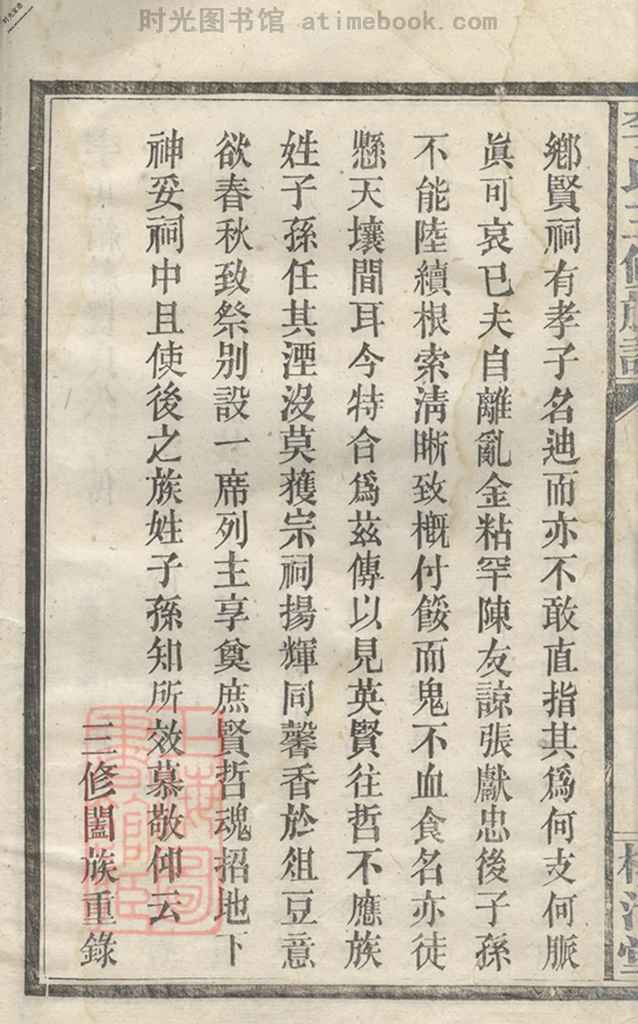 时光图书馆 atimebook.com
鄉賢祠有孝子名迪而亦不敢直指其爲何支何脈
眞可哀已夫自離亂金粘罕陳友諒張獻忠後子孫
不能陸續根索淸晰致槪付餒而鬼不血食名亦徒
懸天壤間耳今特合爲茲傳以見英賢往哲不應族
姓子孫任其湮沒莫獲宗祠揚輝同馨香於俎豆意
欲春秋致祭別設一席列主享奠庶賢哲魂招地下
神妥祠中且使後之族姓子孫知所效慕敬仰云
三修闔族重錄